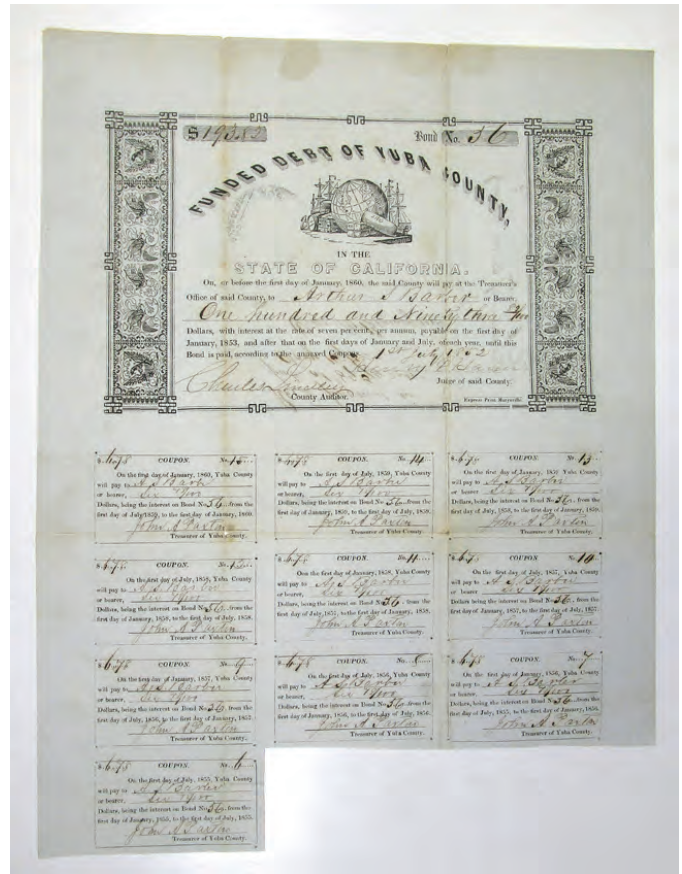 $ 193.82 Bond No. 36
FUNDED DEBT OF YUBA COUNTY,
IN THE
STATE OF CALIFORNIA.
On, or before the first day of January, 1860, the said County will pay at the Treasurer's
Office of said County, to Arthur S Barber or Bearer,
One hundred and Ninety three
Dollars, with interest at the rate of seven per cent., per annum, payable on the first day of
January, 1853, and after that on the first days of January and July, of each year, until this
Bond is paid, according to the annexed Coupons. 1st July 1852
Charles Lindley
Judge of said County.
County Auditor.
Express Print, Marysville
$ 6.78 COUPON. No. 15
On the first day of January, 1860, Yuba County
will pay to A S Barber
or bearer, Six
Dollars, being the interest on Bond No. 36, from the
first day of July, 1859, to the first day of January, 1860.
John A Paxton
Treasurer of Yuba County.
$ 6.78 COUPON. No. 14
On the first day of July, 1859, Yuba County
will pay to A S Barber
or bearer, Six
Dollars, being the interest on Bond No. 36, from the
first day of January, 1859, to the first day of July, 1859.
John A Paxton
Treasurer of Yuba County.
$ 6.78 COUPON. No. 13
On the first day of January, 1859, Yuba County
will pay to A S Barber
or bearer, Six
Dollars, being the interest on Bond No. 36, from the
first day of July, 1858, to the first day of January, 1859.
John A Paxton
Treasurer of Yuba County.
$ 6.78 COUPON. No. 12
On the first day of July, 1858, Yuba County
will pay to A S Barber
or bearer, Six
Dollars, being the interest on Bond No. 36, from the
first day of January, 1858, to the first day of July, 1858.
John A Paxton
Treasurer of Yuba County.
$ 6.78 COUPON. No. 11
On the first day of January, 1858, Yuba County
will pay to A S Barber
or bearer, Six
Dollars, being the interest on Bond No. 36, from the
first day of July, 1857, to the first day of January, 1858.
John A Paxton
Treasurer of Yuba County.
$ 6.78 COUPON. No. 10
On the first day of July, 1857, Yuba County
will pay to A S Barber
or bearer, Six
Dollars, being the interest on Bond No. 36, from the
first day of January, 1857, to the first day of July, 1857.
John A Paxton
Treasurer of Yuba County.
$ 6.78 COUPON. No. 9
On the first day of January, 1857, Yuba County
will pay to A S Barber
or bearer, Six
Dollars, being the interest on Bond No. 36, from the
first day of July, 1856, to the first day of January, 1857.
John A Paxton
Treasurer of Yuba County.
$ 6.78 COUPON. No. 8
On the first day of July, 1856, Yuba County
will pay to A S Barber
or bearer, Six
Dollars, being the interest on Bond No. 36, from the
first day of January, 1856, to the first day of July, 1856.
John A Paxton
Treasurer of Yuba County.
$ 6.78 COUPON. No. 7
On the first day of January, 1856, Yuba County
will pay to A S Barber
or bearer, Six
Dollars, being the interest on Bond No. 36, from the
first day of July, 1855, to the first day of January, 1856.
John A Paxton
Treasurer of Yuba County.
$ 6.78 COUPON. No. 6
On the first day of July, 1855, Yuba County
will pay to A S Barber
or bearer, Six
Dollars, being the interest on Bond No. 36, from the
first day of January, 1855, to the first day of July, 1855.
John A Paxton
Treasurer of Yuba County.